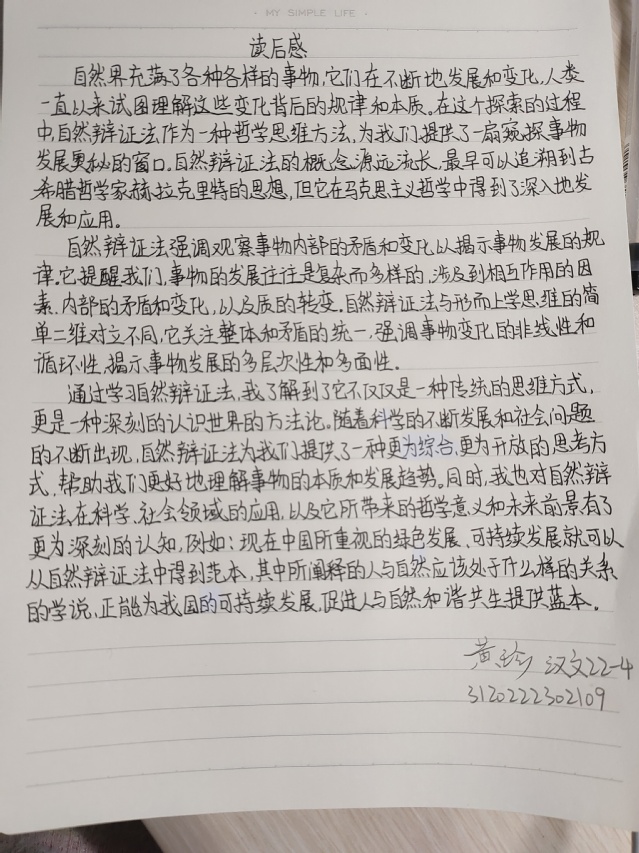 · MY SIMPLE LIFE ·
读后感
自然界充满了各种各样的事物,它们在不断地发展和变化,人类
一直以来试图理解这些变化背后的规律和本质。在这个探索的过程
中,自然辩证法作为一种哲学思维方法,为我们提供了一扇窥探事物
发展奥秘的窗口。自然辩证法的概念源远流长,最早可以追溯到古
希腊哲学家赫拉克里特的思想,但它在马克思主义哲学中得到了深入地发
展和应用。
自然辩证法强调观察事物内部的矛盾和变化以揭示事物发展的规
律。它提醒我们,事物的发展往往是复杂而多样的,涉及到相互作用的因
素、内部的矛盾和变化,以及质的转变。自然辩证法与形而上学思维的简
单二维对立不同,它关注整体和矛盾的统一,强调事物变化的非线性和
循环性,揭示事物发展的多层次性和多面性。
通过学习自然辩证法,我了解到了它不仅仅是一种传统的思维方式,
更是一种深刻的认识世界的方法论。随着科学的不断发展和社会问题
的不断出现,自然辩证法为我们提供了一种更为综合,更为开放的思考方
式,帮助我们更好地理解事物的本质和发展趋势。同时,我也对自然辩
证法在科学、社会领域的应用,以及它所带来的哲学意义和未来前景有了
更为深刻的认知,例如:现在中国所重视的绿色发展、可持续发展就可以
从自然辩证法中得到范本,其中所阐释的人与自然应该处于什么样的关系
的学说,正能为我国的可持续发展,促进人与自然和谐共生提供蓝本。
黄珍 汉文22-4
3120222302109